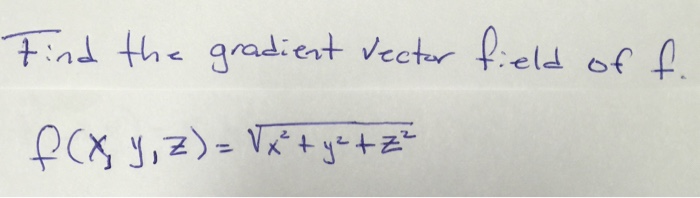 Find the gradient vector field of f.
f(x, y, z) = √x² + y² + z²